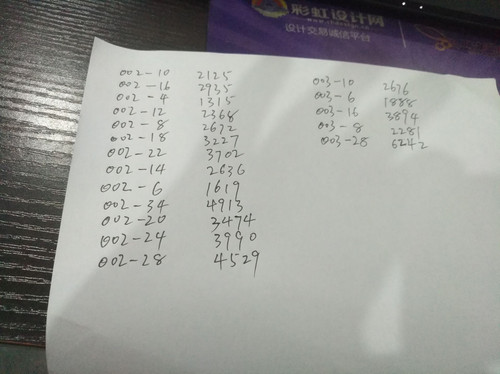 彩虹设计网
设计交易诚信平台
002-10 2125
002-16 2935
002-4 1315
002-12 2368
002-8 2672
002-18 3227
002-22 3702
002-14 2636
002-6 1619
002-34 4913
002-20 3474
002-24 3990
002-28 4529
003-10 2676
003-6 1888
003-16 3894
003-8 2281
003-28 6242